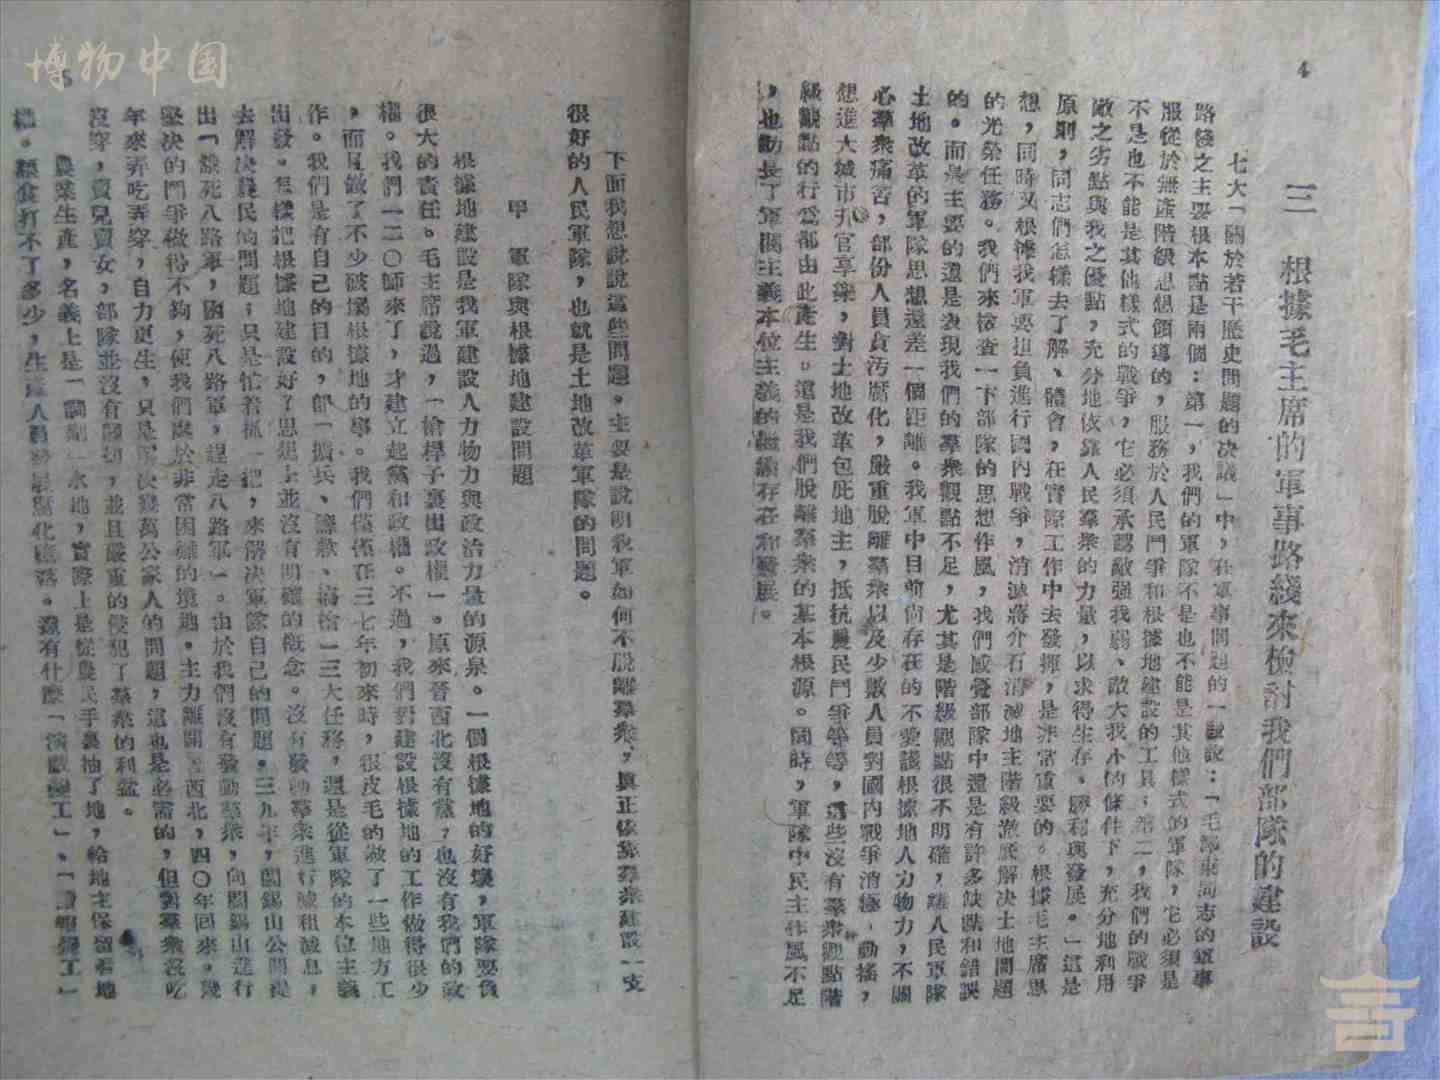 博物中国
4
三 根據毛主席的軍事路綫來檢討我們部隊的建設
七大「關於若干歷史問題的決議」中，在軍事問題的一段說：「毛澤東同志的軍事
路綫之主要根本點是兩個：第一，我們的軍隊不是也不能是其他樣式的軍隊，它必須是
服從於無產階級思想領導的，服務於人民鬥爭和根據地建設的工具；第二，我們的戰爭
不是也不能是其他樣式的戰爭，它必須承認敵强我弱、敵大我小的條件下，充分地利用
敵之劣點與我之優點，充分地依靠人民羣衆的力量，以求得生存、勝利與發展。」這是
原則，同志們怎樣去了解、體會，在實際工作中去發揮，是非常重要的。根據毛主席思
想，同時又根據我軍要担負進行國內戰爭，消滅蔣介石消滅地主階級澈底解決土地問題
的光榮任務。我們來檢查一下部隊的思想作風，我們感覺部隊中還是有許多缺點和錯誤
的。而最主要的還是表現我們的羣衆觀點不足，尤其是階級觀點很不明確，離人民軍隊
土地改革的軍隊思想還差一個距離。我軍中目前尚存在的不愛護根據地人力物力，不關
心羣衆痛苦，部份人員貪汚腐化，嚴重脫離羣衆以及少數人員對國內戰爭消極、動搖，
想進大城市升官享樂，對土地改革包庇地主，抵抗農民鬥爭等等，這些沒有羣衆觀點階
級觀點的行爲都由此產生。這是我們脫離羣衆的基本根源。同時，軍隊中民主作風不足
，也助長了軍閥主義本位主義的繼續存在和發展。
下面我想說說這些問題。主要是說明我軍如何不脫離羣衆，眞正依靠羣衆建設一支
很好的人民軍隊，也就是土地改革軍隊的問題。
甲 軍隊與根據地建設問題
根據地建設是我軍建設人力物力與政治力量的源泉。一個根據地的好壞，軍隊要負
很大的責任。毛主席說過，「槍桿子裏出政權」。原來晋西北沒有黨，也沒有我們的政
權。我們一二〇師來了，才建立起黨和政權。不過，我們對建設根據地的工作做得很少
，而且做了不少破壞根據地的事。我們僅僅在三七年初來時，很皮毛的做了一些地方工
作。我們是有自己的目的，即「擴兵、籌款、搞槍」三大任務，還是從軍隊的本位主義
出發。怎樣把根據地建設好？思想上並沒有明確的概念。沒有發動羣衆進行減租減息，
去解決農民的問題；只是忙着抓一把，來解決軍隊自己的問題。三九年，閻錫山公開提
出「餓死八路軍，困死八路軍，趕走八路軍」。由於我們沒有發動羣衆，向閻錫山進行
堅決的鬥爭做得不夠，使我們處於非常困難的境地。主力離開晋西北，四〇年回來。幾
年來弄吃弄穿，自力更生，只是解決幾萬公家人的問題，這也是必需的，但對羣衆沒吃
沒穿，賣兒賣女，部隊並沒有關切，並且嚴重的侵犯了羣衆的利益。
農業生產，名義上是「調劑」水地，實際上是從農民手裏抽了地，給地主保留着地
權。糧食打不了多少，生產人員發展腐化墮落。還有什麼「演戲變工」、「